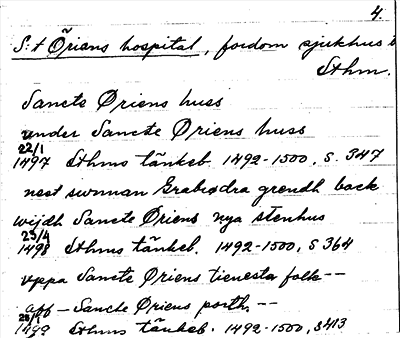 4.
S:t Örians hospital, fordom sjukhus i
Sthm.
Sancte Øriens huss
under Sancte Øriens huss
22/1
1497 Sthms tänkeb. 1492-1500, s. 347
nest sunnan Grabrødra grendh back
widh Sancte Øriens nya stenhus
23/4
1498 Sthms tänkeb. 1492-1500, s 364
vppa Sancte Øriens tienesta folk--
aff - Sancte Øriens porth. --
1499 Sthms tänkeb. 1492-1500, s 413